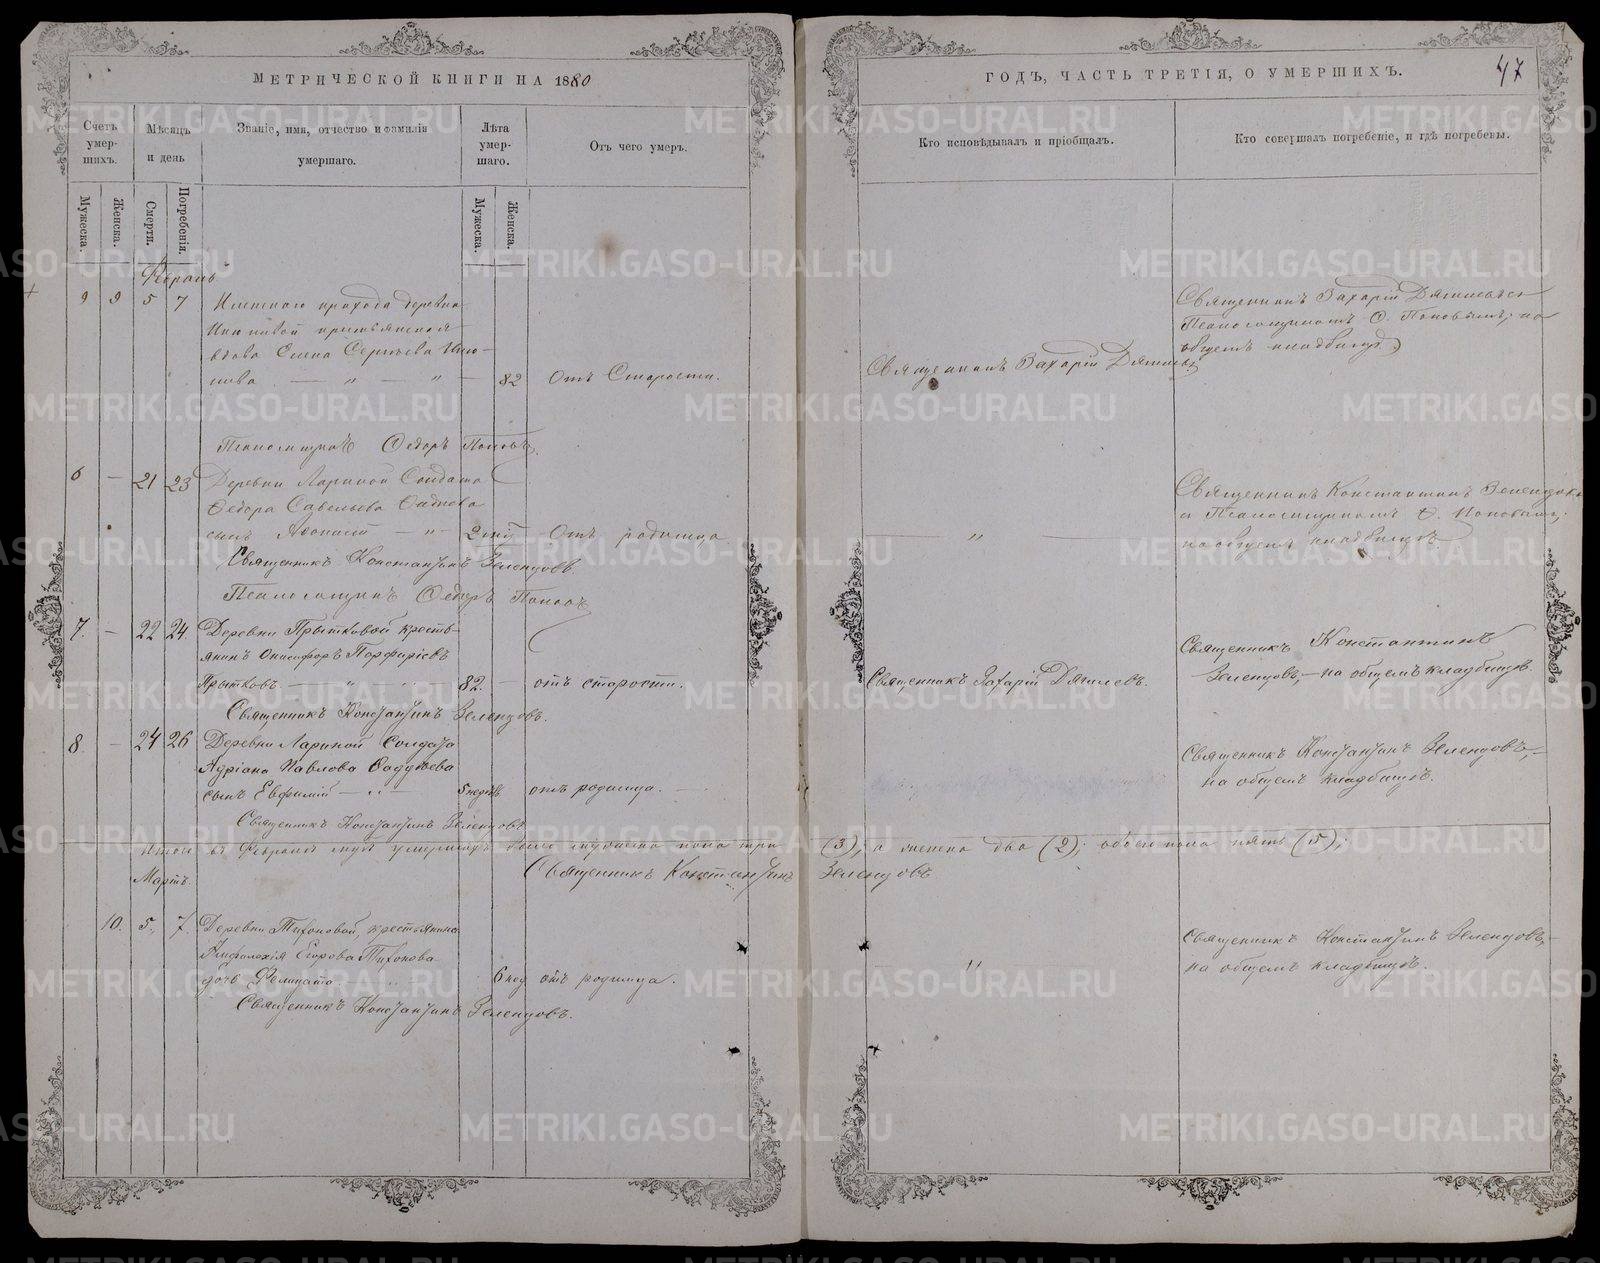 МЕТРИЧЕСКОЙ КНИГИ НА 1880
ГОДЪ, ЧАСТЬ ТРЕТІЯ, О УМЕРШИХЪ.
47
Счетъ умер-
шихъ.
Мѣсяцъ
и день
Званіе, имя, отчество и фамилія
умершаго.
Лѣта
умер-
шаго.
Отъ чего умеръ.
Кто исповѣдывалъ и пріобщалъ.
Кто совершалъ погребеніе, и гдѣ погребены.
Мужеска.
Женска.
Смерти.
Погребенія.
Мужеска.
Женска.
Февраль
9 5 7
прихода деревни
крестьянская
вдова Елена Сергѣева
82 Отъ Старости.
Священникъ Захарій Дягилевъ
Священникъ Захарій Дягилевъ
Псаломщикомъ Ѳ. Поповымъ, на
общемъ кладбищѣ
Псаломщикъ Ѳедоръ Поповъ.
6 — 21 23 Деревни Лариной Солдата
Ѳедора Савельева
сынъ Аѳонасій — „ — 2 Отъ родимца
— „ —
Священникъ Константинъ Зеленцовъ
и Псаломщикомъ Ѳ. Поповымъ,
на общемъ кладбищѣ
Священникъ Константинъ Зеленцовъ.
Псаломщикъ Ѳедоръ Поповъ
7. — 22 24. Деревни Прытковой кресть-
янинъ Онисифоръ Порфиріевъ
Прытковъ. — „ 82. — отъ старости.
Священникъ Захарій Дягилевъ.
Священникъ Константинъ
Зеленцовъ, — на общемъ кладбищѣ
Священникъ Константинъ Зеленцовъ.
8. — 24 26 Деревни Лариной Солдата
Адріана Павлова
сынъ Евфимій — „ — 5 недѣль отъ родимца. —
Священникъ Константинъ Зеленцовъ, —
на общемъ кладбищѣ.
Священникъ Константинъ Зеленцовъ
Итого въ Февралѣ м-цѣ умершихъ было мужеска пола три (3), а женска два (2); обоего пола пять (5);
Священникъ Константинъ Зеленцовъ
Мартъ.
10. 5. 7. Деревни Тихоновой, крестьянина
Егорова Тихонова
дочь Фелицата. 6 нед отъ родимца.
„
Священникъ Константинъ Зеленцовъ, —
на общемъ кладбищѣ.
Священникъ Константинъ Зеленцовъ.
METRIKI.GASO-URAL.RU